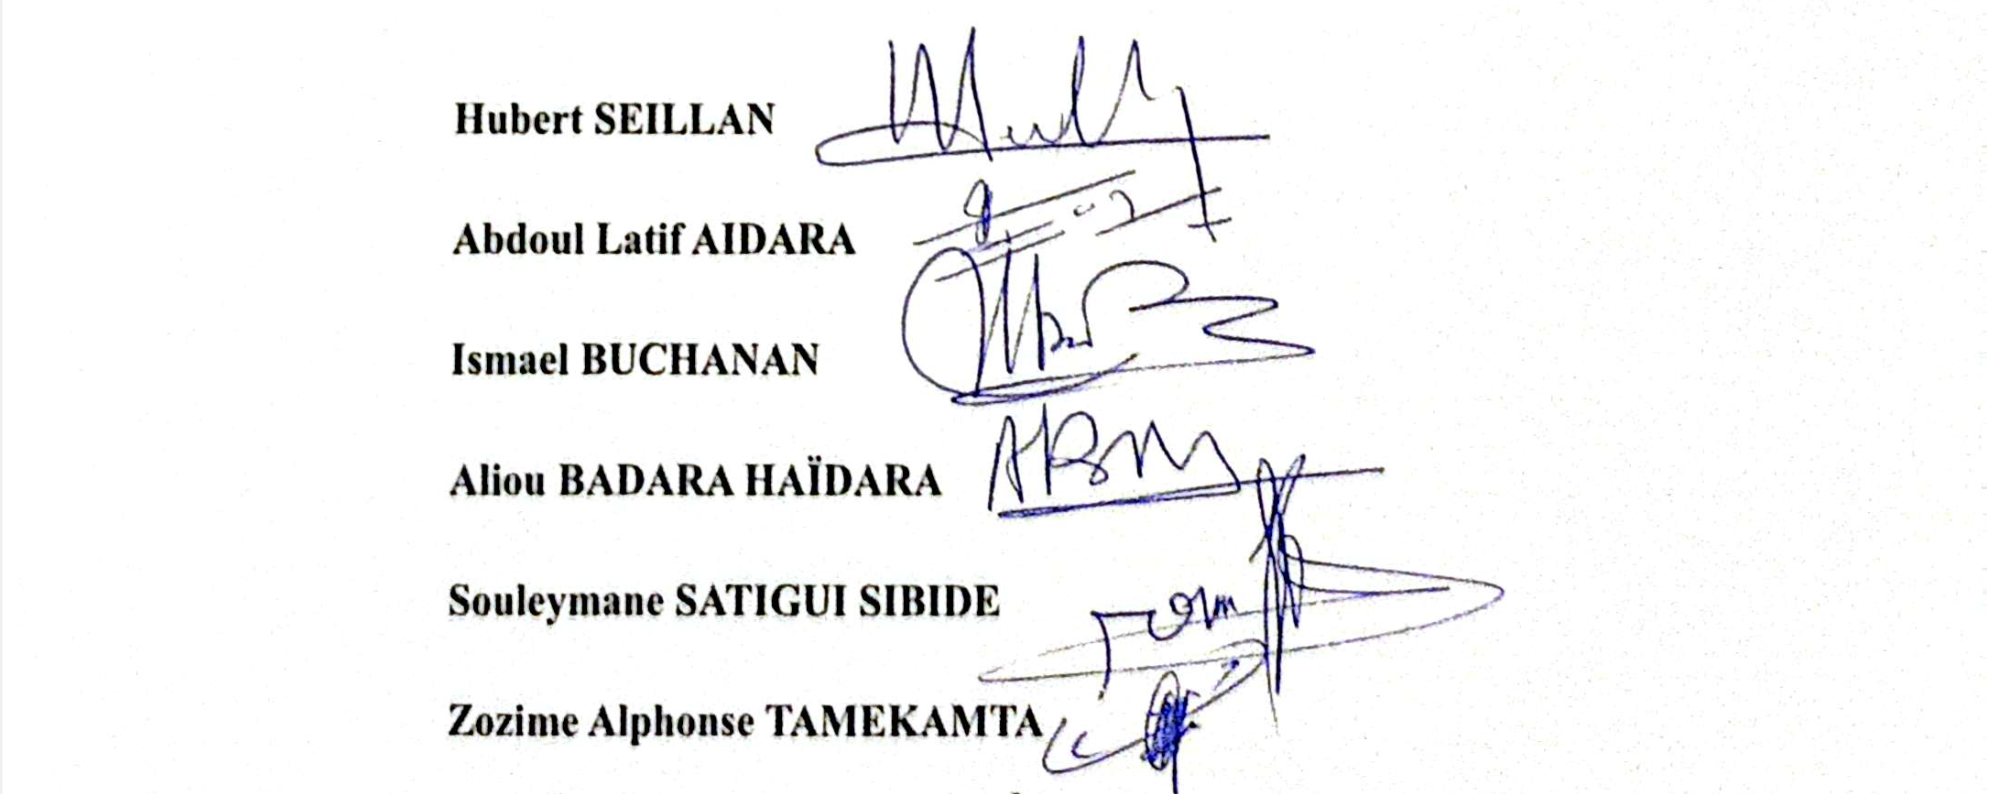 Hubert SEILLAN
Abdoul Latif AIDARA
Ismael BUCHANAN
Aliou BADARA HAÏDARA
Souleymane SATIGUI SIBIDE
Zozime Alphonse TAMEKAMTA